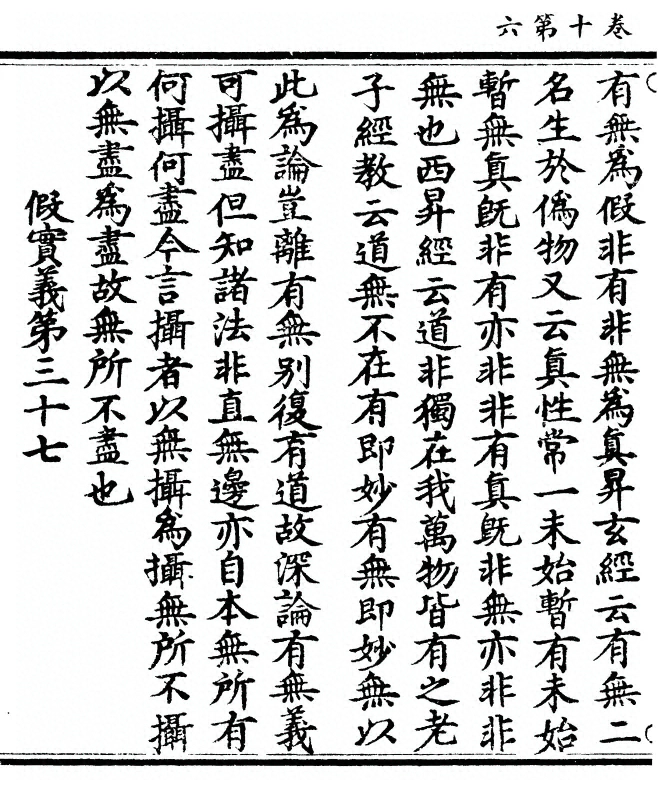 卷十第六
有無爲假非有非無爲真昇玄經云有無二
名生於僞物又云真性常一未始暫有未始
暫無真既非有亦非非有真既非無亦非非
無也西昇經云道非獨在我萬物皆有之老
子經教云道無不在有即妙有無即妙無以
此爲論豈離有無别復有道故深論有無義
可攝盡但知諸法非直無邊亦自本無所有
何攝何盡今言攝者以無攝爲攝無所不攝
以無盡爲盡故無所不盡也
假實義第三十七